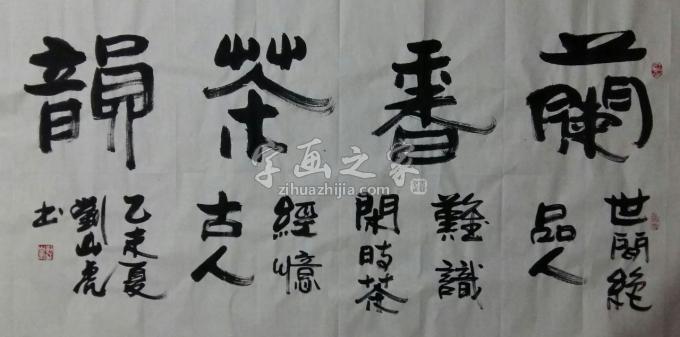 蘭香茶韻
世間絕
品人
難識
閑時茶
經憶
古人
乙未夏
劉山虎
书
字画之家
zihuazhijia.com